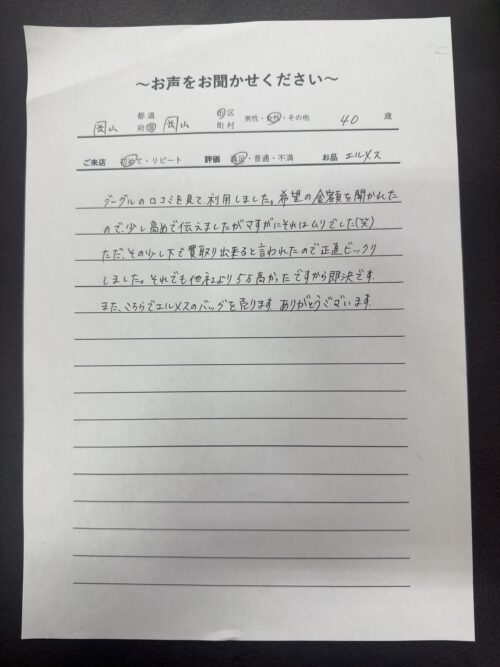 ～お声をお聞かせください～
岡山 都道府県 岡山 市区町村 男性・女性・その他 40 歳
ご来店 初めて・リピート 評価 満足・普通・不満 お品 エルメス
グーグルの口コミを見て、利用しました。希望の金額を聞かれた
ので、少し高めで伝えましたがさすがにそれはムリでした(笑)
ただ、その少し下で買取り出来ると言われたので正直ビックリ
しました。それでも他社より5万高かったですから即決です。
また、こちらでエルメスのバッグを売ります ありがとうございます